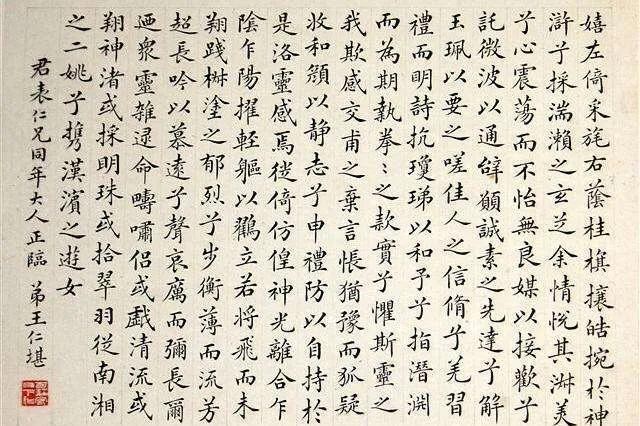 嬉左倚采旄右蔭桂旗攘皓捥於神
滸兮採湍瀨之玄芝余情悅其淑美
兮心震蕩而不怡無良媒以接歡兮
託微波以通辭願誠素之先達兮解
玉珮以要之嗟佳人之信脩兮羌習
禮而明詩抗瓊珶以和予兮指潛淵
而為期執拳〻之款實兮懼斯靈之
我欺感交甫之棄言悵猶豫而狐疑
收和顏以静志兮申禮防以自持於
是洛靈感焉徙倚仿偟神光離合乍
陰乍陽擢輕軀以鶴立若將飛而未
翔踐椒塗之郁烈兮步衡薄而流芳
超長吟以慕遠兮聲哀厲而彌長爾
迺眾靈雜遝命疇嘯侶或戲清流或
翔神渚或採明珠或拾翠羽從南湘
之二姚兮攜漢濱之遊女
君表仁兄同年大人正臨 弟王仁堪